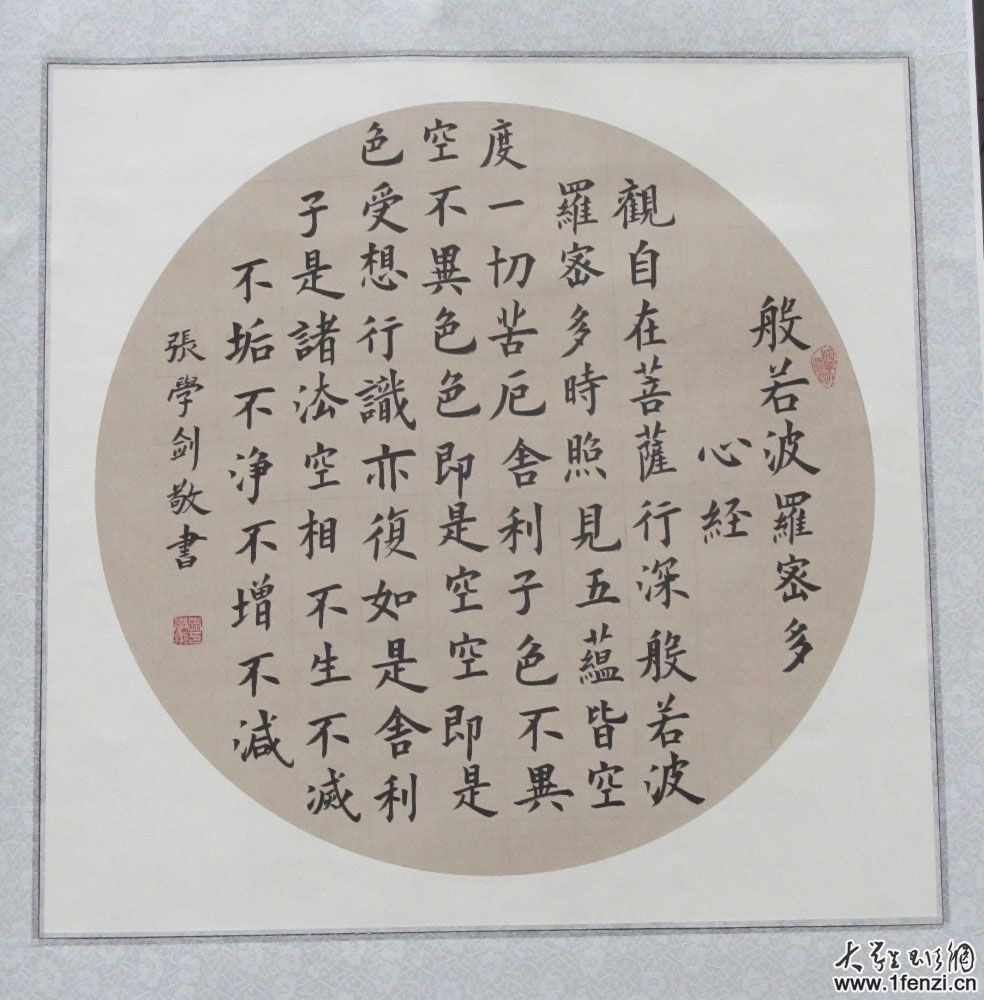 般若波羅密多
心経
觀自在菩薩行深般若波
羅密多時照見五蘊皆空
度一切苦厄舍利子色不異
空不異色色即是空空即是
色受想行識亦復如是舍利
子是諸法空相不生不滅
不垢不净不增不減
張學劍敬書
www.1fenzi.cn